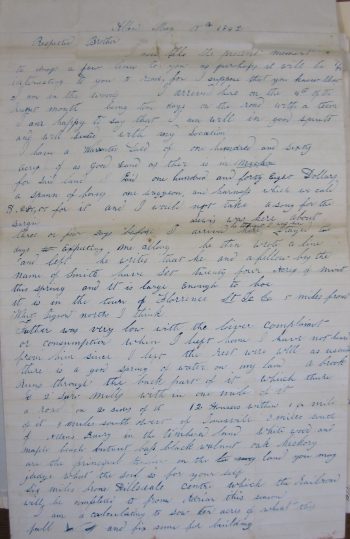 Allen May 15th 1842
Respected Brother
I now take the present moment
to drop a few lines to you as perhaps it will be
interesting to you to read for I suppose that you knew that
I was on the wing I arrived here on the 4th of the
present month being ten days on the road with a team
I am happy to say that I am well in good spirits
and well suited with my location
I have a Warrantee Deed of one hundred and sixty
acres of as good land as there is in Michn
for said land I paid one hundred and forty eight Dollars
a span of horses one waggon and harness which we call
for it and I would not take a song for the
bargin was here about
three or four days before I arrived
days expecting me along he then wrote a line
and left he writes that he and a fellow by the
name of Smith have got twenty four acres of wheat
this spring and it is large enough to hoe
it is in the town of Florence St Jo Co 5 miles from
north I think
Father was very low with the liver complaint
or consumption when I left home I have not heard
from him since I left the rest were well as usual
there is a good spring of water on my land a brook
runs through the back part of it which there
is 2 saw mills with in one mile of it
a road on 2 sides of it 12 Houses within 1 a mile
of it 4 miles south West of Jonesville 3 miles south
of Allens Prairy in the timbered land White wood and
maple beach butnut bass black walnut oak hickory
are the principal timber on the land you may
judge what the soil is for your self
Six miles from Hillsdale centre which the Railroad
will be completed to from Adrian this season
I am a calculating to sow ten acres of wheat this
fall and fix some for building